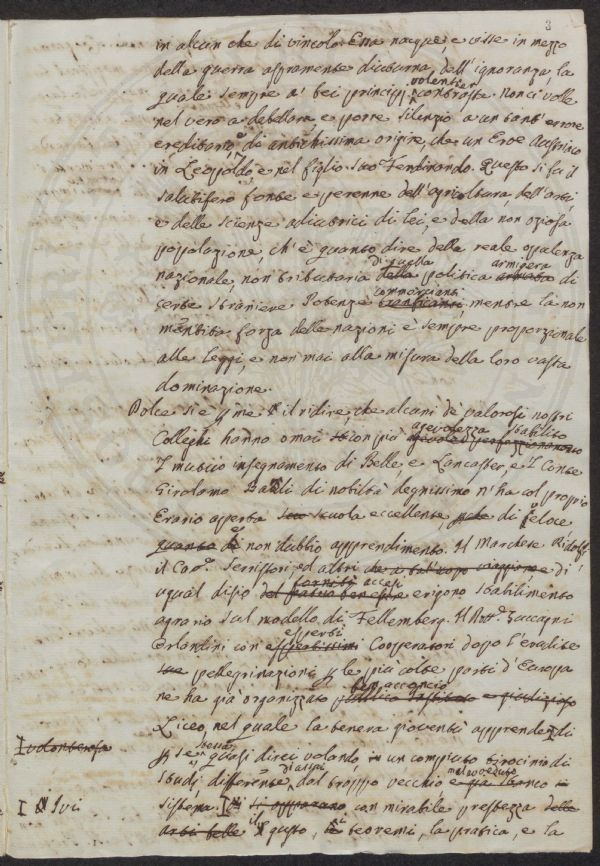 3
in alcun che di vincolo. Essa nacque, e visse in mezzo
della guerra aspramente diuturna dell'ignoranza la
volentier
quale sempre a' bei principj contrasta. Non ci volle
nel vero a debellare, e porre silenzio a un tant' errore
ereditario, e di antichissima origine, che un Eroe Austriaco
in Leopoldo, e nel figlio suo Ferdinando. Questo si fu il
salutifero fonte e perenne dell'agricoltura, dell'arti
e delle scienze adiutrici di lei, e della non oziosa
popolazione, ch'è quanto dire della reale opulenza
di quella armigera
nazionale, non tributaria della politica armata di
commercianti
certe straniere Potenze trafficanti, mentre la non
mentita forza delle nazioni è sempre proporzionale
alle leggi, e non mai alla misura della loro vasta
dominazione.
Dolce si è per me il ridire, che alcuni de' valorosi nostri
agevolezza stabilito
Colleghi hanno omai con più
I mutuo insegnamento di Belle, e Lancaster, e I Conte
Girolamo Bardi di nobiltà degnissimo n'ha col proprio
Erario aperta scuola eccellente, di veloce
e non dubbio apprendimento. Il Marchese Ridolfi
il Cav. Serristori, ed altri di
forniti accesi
ugual disio erigono stabilimento
agrario sul modello di Fellemberg. Il Dott. Zuccagni
esperti
Orlandini con Cooperatori dopo l'erudite
sue pellegrinazioni per le più colte parti d'Europa
ben acconcio
ne ha già organizzato
Liceo, nel quale la tenera gioventù apprende di
stessa
per se quasi direi volando, un compiuto tirocinio di
d'assai malveduto
studj differente dal troppo vecchio
I Ivi
sistema. con mirabile prestezza delle
arti belle il gusto, i teoremi, la pratica, e la